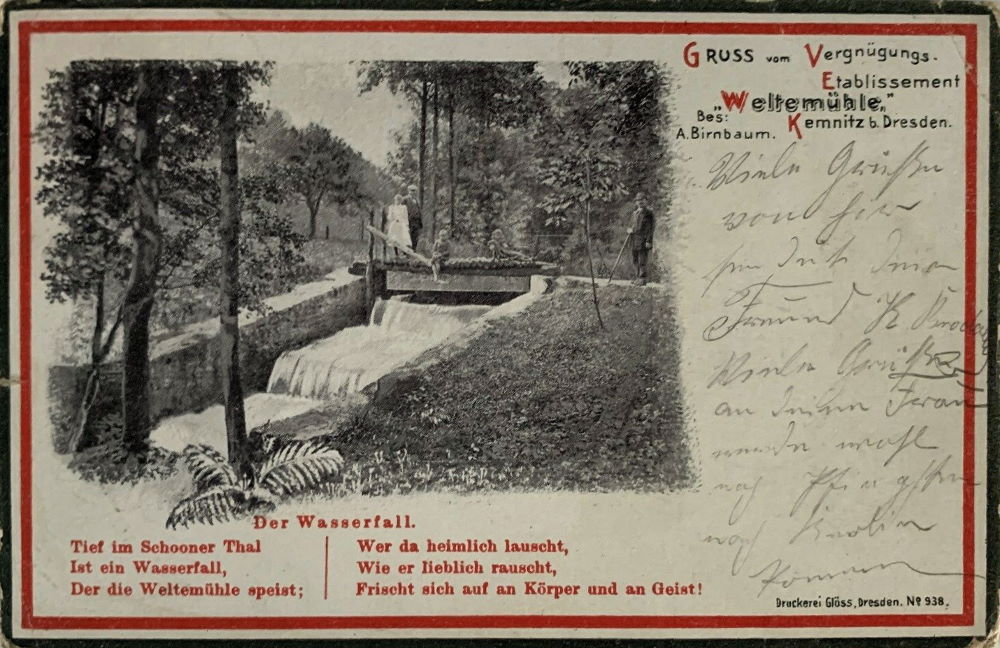 Gruss vom Vergnügungs-
Etablissement
„Weltemühle,"
Bes:
A. Birnbaum. Kemnitz b. Dresden.
Viele Grüße
von hier
Dein
Freund K.
Viele Grüße
an Deine Frau
werde wohl
nach Pfingsten
nach Berlin
kommen
Der Wasserfall.
Tief im Schooner Thal
Ist ein Wasserfall,
Der die Weltemühle speist;
Wer da heimlich lauscht,
Wie er lieblich rauscht,
Frischt sich auf an Körper und an Geist!
Druckerei Glöss, Dresden. No 938.